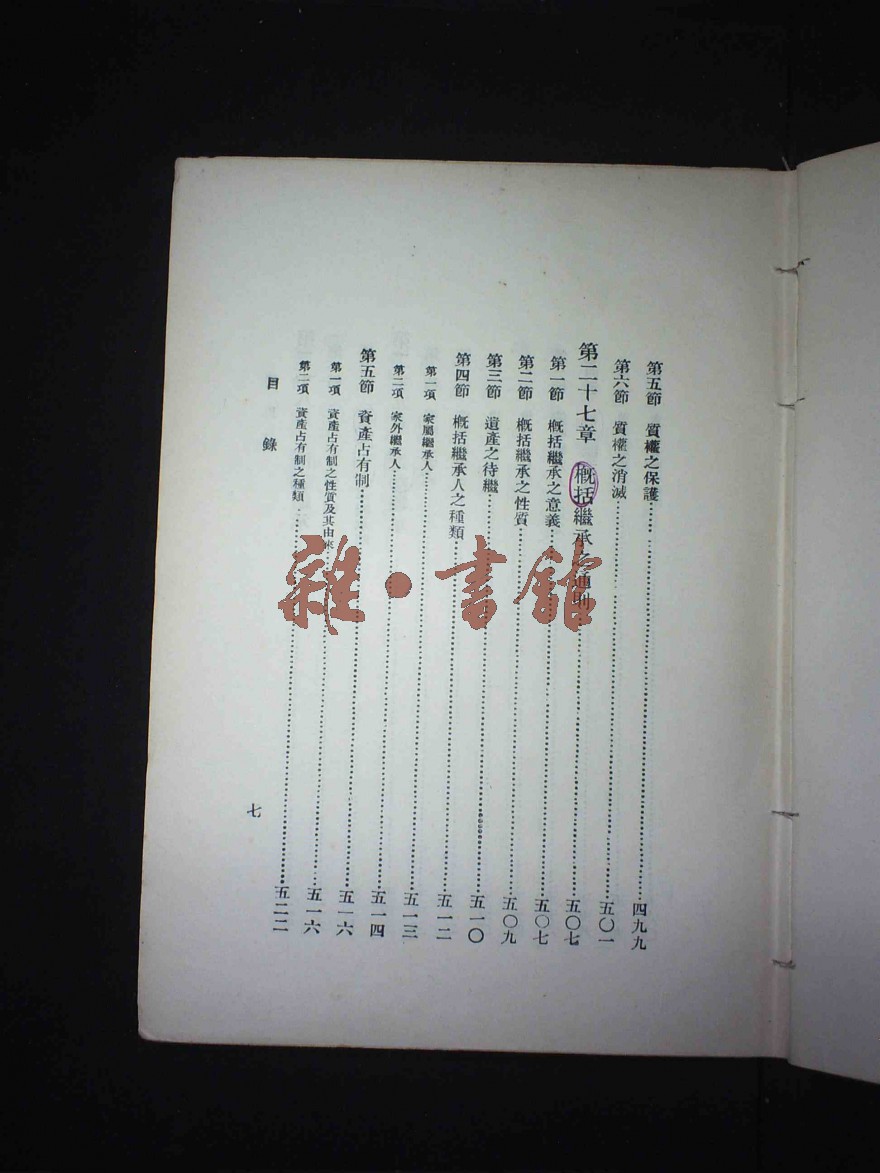 第五節　質權之保護……四九九
第六節　質權之消滅……五〇一
第二十七章　概括繼承之通則……五〇七
第一節　概括繼承之意義……五〇七
第二節　概括繼承之性質……五〇九
第三節　遺產之待繼……五一〇
第四節　概括繼承人之種類……五一二
第一項　家屬繼承人……五一三
第二項　家外繼承人……五一四
第五節　資產占有制……五一六
第一項　資產占有制之性質及其由來……五一六
第二項　資產占有制之種類……五二二
目錄
七
雜·書館